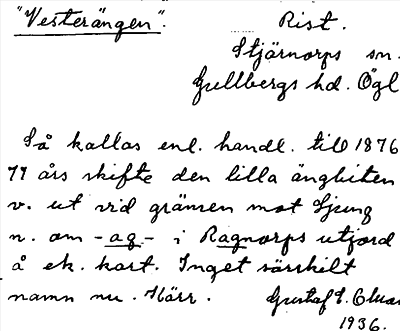 "Vesterängen". Rist.
Stjärnorps sn.
Gullbergs hd. Ögl
Så kallas enl. handl. till 1876
77 års skifte den lilla ängbiten
v. ut vid gränsen mot Ljung
n. om -ag- i Ragnorps utjord
å ek. kart. Inget särskilt
namn nu. Härr. Gustaf E.
1936.